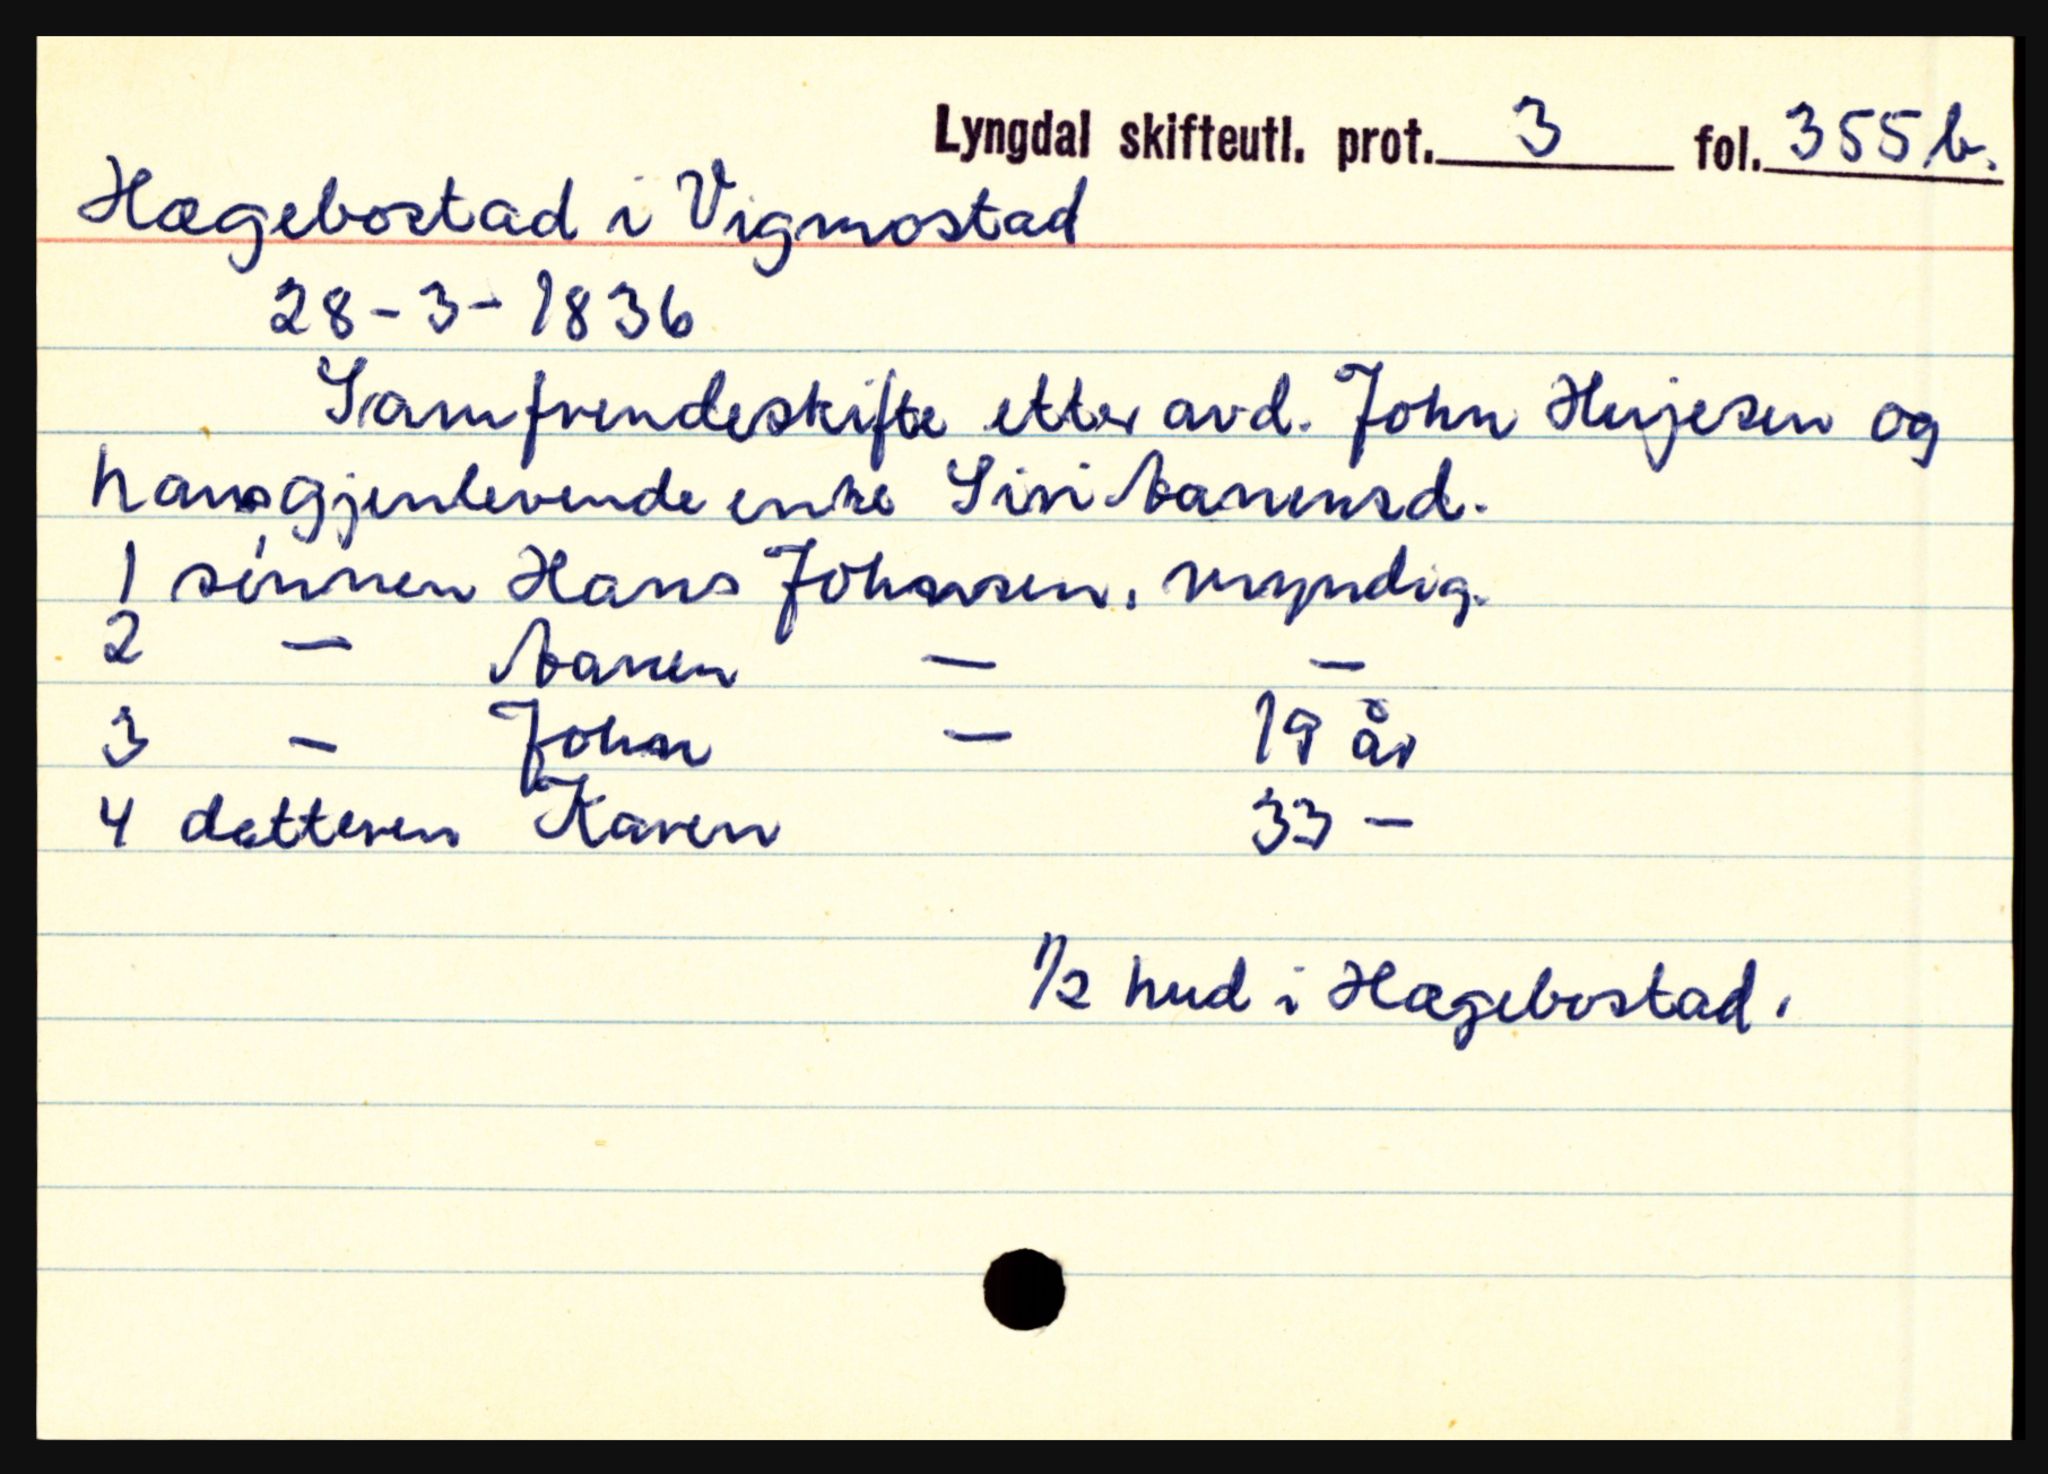 Lyngdal skifteutl. prot. 3 fol. 355 b.
Hægebostad i Vigmostad
28-3-1836
Samfrendeskifte etter avd. John Herjesen og
hans gjenlevende enke Siri Aanensd.
1 sønnen Hans Johnsen, myndig.
2 — Aanen — —
3 — John — 19 år
4 datteren Karen 33 —
1/2 hud i Hægebostad.